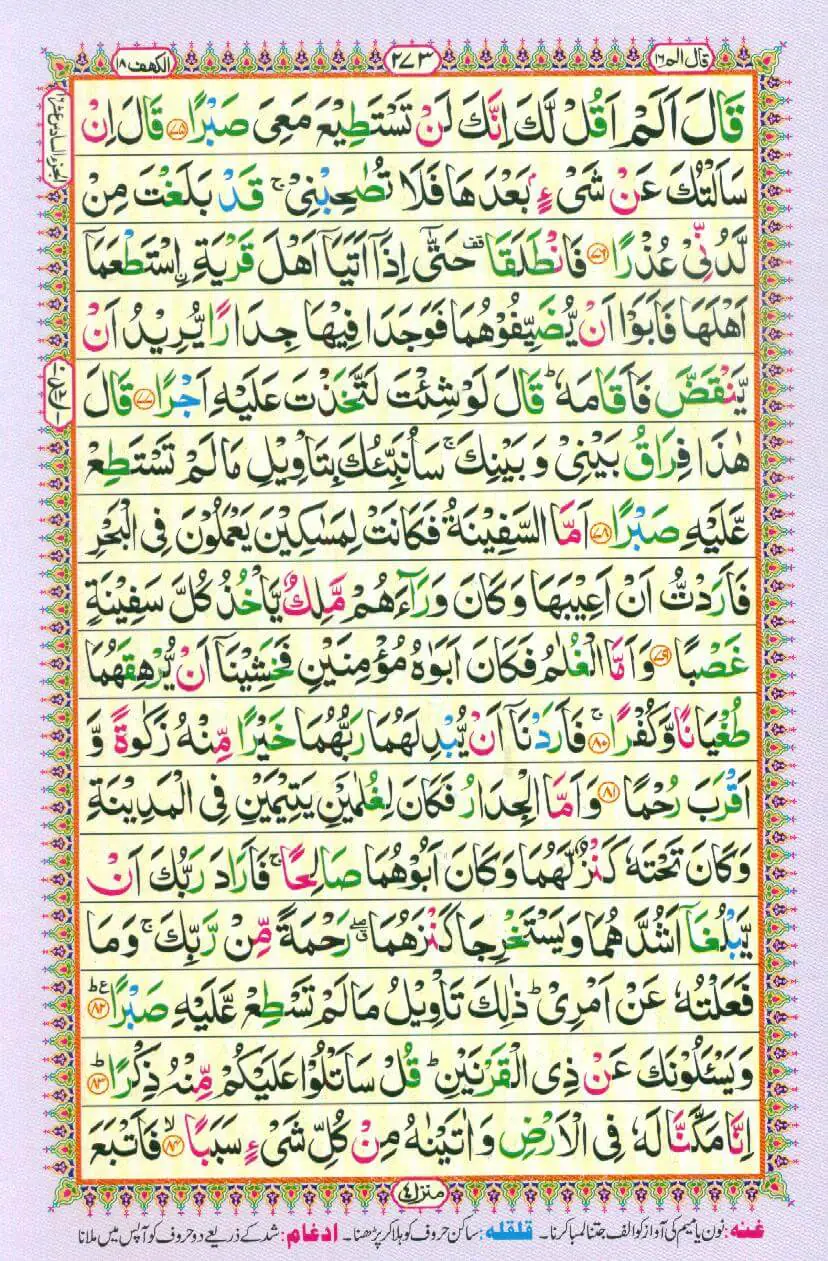 قال الم ١٦
٢٧٣
الكهف ١٨
قَالَ اَلَمْ اَقُلْ لَّكَ اِنَّكَ لَنْ تَسْتَطِيْعَ مَعِىَ صَبْرًا ﴿۷۵﴾ قَالَ اِنْ
سَاَلْتُكَ عَنْ شَىْءٍۭ بَعْدَهَا فَلَا تُصٰحِبْنِىْ ۚ قَدْ بَلَغْتَ مِنْ
لَّدُنِّىْ عُذْرًا ﴿۷۶﴾ فَانْطَلَقَا ٝ حَتّٰٓى اِذَاۤ اَتَيَاۤ اَهْلَ قَرْيَةِ ۟اسْتَطْعَمَاۤ
اَهْلَهَا فَاَبَوْا اَنْ يُّضَيِّفُوْهُمَا فَوَجَدَا فِيْهَا جِدَارًا يُّرِيْدُ اَنْ
يَّنْقَضَّ فَاَقَامَهٗ ؕ قَالَ لَوْ شِئْتَ لَتَّخَذْتَ عَلَيْهِ اَجْرًا ﴿۷۷﴾ قَالَ
هٰذَا فِرَاقُ بَيْنِىْ وَبَيْنِكَ ۚ سَاُنَبِّئُكَ بِتَاْوِيْلِ مَا لَمْ تَسْتَطِعْ
عَّلَيْهِ صَبْرًا ﴿۷۸﴾ اَمَّا السَّفِيْنَةُ فَكَانَتْ لِمَسٰكِيْنَ يَعْمَلُوْنَ فِى الْبَحْرِ
فَاَرَدْتُّ اَنْ اَعِيْبَهَا وَكَانَ وَرَآءَهُمْ مَّلِكٌ يَّاْخُذُ كُلَّ سَفِيْنَةٍ
غَصْبًا ﴿۷۹﴾ وَاَمَّا الْغُلٰمُ فَكَانَ اَبَوٰهُ مُؤْمِنَيْنِ فَخَشِيْنَاۤ اَنْ يُّرْهِقَهُمَا
طُغْيَانًا وَّكُفْرًا ۚ﴿۸۰﴾ فَاَرَدْنَاۤ اَنْ يُّبْدِلَهُمَا رَبُّهُمَا خَيْرًا مِّنْهُ زَكٰوةً وَّ
اَقْرَبَ رُحْمًا ﴿۸۱﴾ وَاَمَّا الْجِدَارُ فَكَانَ لِغُلٰمَيْنِ يَتِيْمَيْنِ فِى الْمَدِيْنَةِ
وَكَانَ تَحْتَهٗ كَنْزٌ لَّهُمَا وَكَانَ اَبُوْهُمَا صَالِحًا ۚ فَاَرَادَ رَبُّكَ اَنْ
يَّبْلُغَاۤ اَشُدَّهُمَا وَيَسْتَخْرِجَا كَنْزَهُمَا ۖ رَحْمَةً مِّنْ رَّبِّكَ ۚ وَمَا
فَعَلْتُهٗ عَنْ اَمْرِىْ ؕ ذٰلِكَ تَاْوِيْلُ مَا لَمْ تَسْطِعْ عَّلَيْهِ صَبْرًا ﴿۸۲﴾ؕ
وَيَسْـَٔلُوْنَكَ عَنْ ذِى الْقَرْنَيْنِ ؕ قُلْ سَاَتْلُوْا عَلَيْكُمْ مِّنْهُ ذِكْرًا ﴿۸۳﴾ؕ
اِنَّا مَكَّنَّا لَهٗ فِى الْاَرْضِ وَاٰتَيْنٰهُ مِنْ كُلِّ شَىْءٍ سَبَبًا ۙ﴿۸۴﴾ فَاَتْبَعَ
منزل ٤
غنه: نون یا میم کی آواز کو الف جتنا لمبا کرنا۔ قلقله: ساکن حروف کو ہلا کر پڑھنا۔ ادغام: شد کے ذریعے دو حروف کو آپس میں ملانا